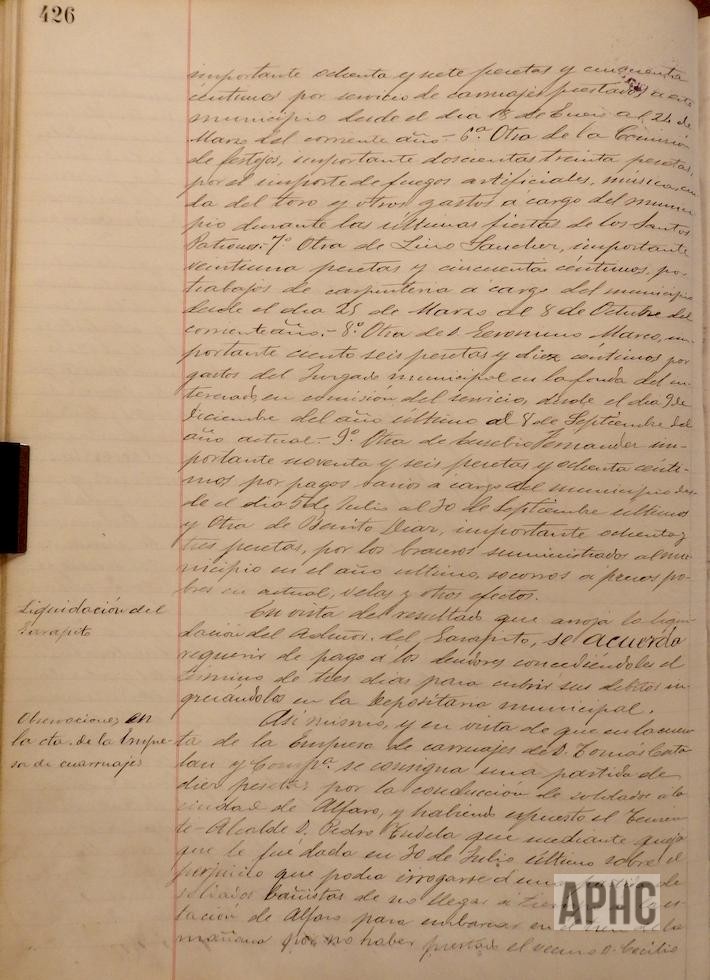 426
importante ochenta y siete pesetas y cincuenta
centimos por servicio de carruajes prestados a este
municipio desde el dia 18 de Enero al 24 de
Marzo del corriente año.- 6.ª Otra de la Comisión
de festejos, importante doscientas treinta pesetas,
por el importe de fuegos artificiales, música,
da del toro y otros gastos á cargo del munici
pio durante las ultimas fiestas de los Santos
Patronos. 7.º Otra de Lino Sanchez, importante
veintiuna pesetas y cincuenta céntimos, por
trabajos de carpinteria a cargo del municipio
desde el dia 25 de Marzo al 8 de Octubre del
corriente año.- 8.º Otra de D. Geronimo Marco, im-
portante ciento seis pesetas y diez céntimos por
gastos del Juzgado municipal en la fonda del in
teresado, en comisión del servicio, desde el dia 9 de
Diciembre del año último al 8 de Septiembre del
año actual.- 9.º Otra de Eusebio Hernandez im-
portante noventa y seis pesetas y ochenta centi-
mos por pagos varios a cargo del municipio des-
de el dia 5 de Julio al 30 de Septiembre ultimos
y Otra de Benito Diaz, importante ochenta y
tres pesetas, por los braceros suministrados al mu
nicipio en el año ultimo, socorros a presos po-
bres en actual, velas y otros efectos.
Liquidación del
Sarapito
En vista del resultado que arroja la liqui-
dación del Admor. del Sarapito, se acuerda
requerir de pago a los deudores concediéndoles el
término de tres dias para cubrir sus debitos in-
gresándolos en la Depositaria municipal.
Observaciones en
la cta. de la Empre-
sa de cuarruajes
Asi mismo, y en vista de que en la cuen
ta de la Empresa de carruajes de D. Tomás Cata
lan y Comp.ª se consigna una partida de
diez pesetas por la conducción de soldados a la
ciudad de Alfaro, y habiendo expuesto el Tenien
te-Alcalde D. Pedro Tudela que mediante queja
que le fué dada en 30 de Julio último sobre el
perjuicio que podia irrogarse á de
bañistas de no llegar á la es
tación de Alfaro para embarcar en el tren de la
mañana por no haber prestado el vecino D. Cecilio
APHC